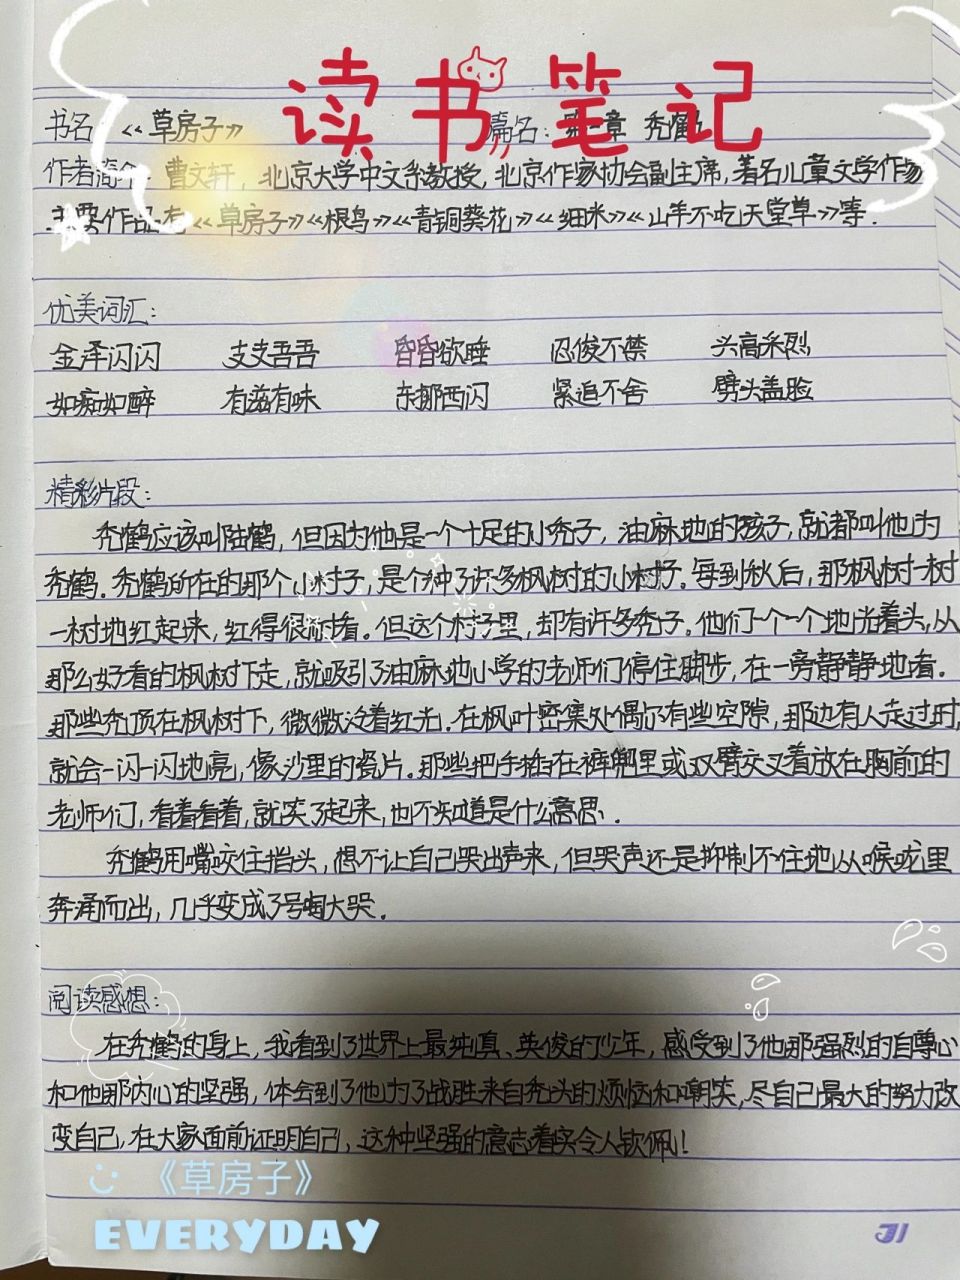 读书笔记
书名：《草房子》 篇名：第一章 秃鹤
作者简介：曹文轩，北京大学中文系教授，北京作家协会副主席，著名儿童文学作家
主要作品有《草房子》《根鸟》《青铜葵花》《细米》《山羊不吃天堂草》等.
优美词汇：
金泽闪闪 支支吾吾 昏昏欲睡 忍俊不禁 兴高采烈
如痴如醉 有滋有味 东挪西闪 紧追不舍 劈头盖脸
精彩片段：
秃鹤应该叫陆鹤，但因为他是一个十足的小秃子，油麻地的孩子，就都叫他为
秃鹤.秃鹤所在的那个小村子，是个种了许多枫树的小村子.每到秋后，那枫树一树
一树地红起来，红得很耐看。但这个村子里，却有许多秃子.他们一个一个地光着头，从
那么好看的枫树下走，就吸引了油麻地小学的老师们停住脚步，在一旁静静地看.
那些秃顶在枫树下，微微泛着红光.在枫叶密集处偶尔有些空隙，那边有人走过时，
就会一闪一闪地亮，像沙里的瓷片.那些把手插在裤兜里或双臂交叉着放在胸前的
老师们，看着看着，就笑了起来，也不知道是什么意思.
秃鹤用嘴咬住指头，想不让自己哭出声来，但哭声还是抑制不住地从喉咙里
奔涌而出，几乎变成了号啕大哭.
阅读感想：
在秃鹤的身上，我看到了世界上最纯真、英俊的少年，感受到了他那强烈的自尊心
和他那内心的坚强，体会到了他为了战胜来自秃头的烦恼和嘲笑，尽自己最大的努力改
变自己，在大家面前证明自己，这种坚强的意志着实令人钦佩！
《草房子》
EVERYDAY